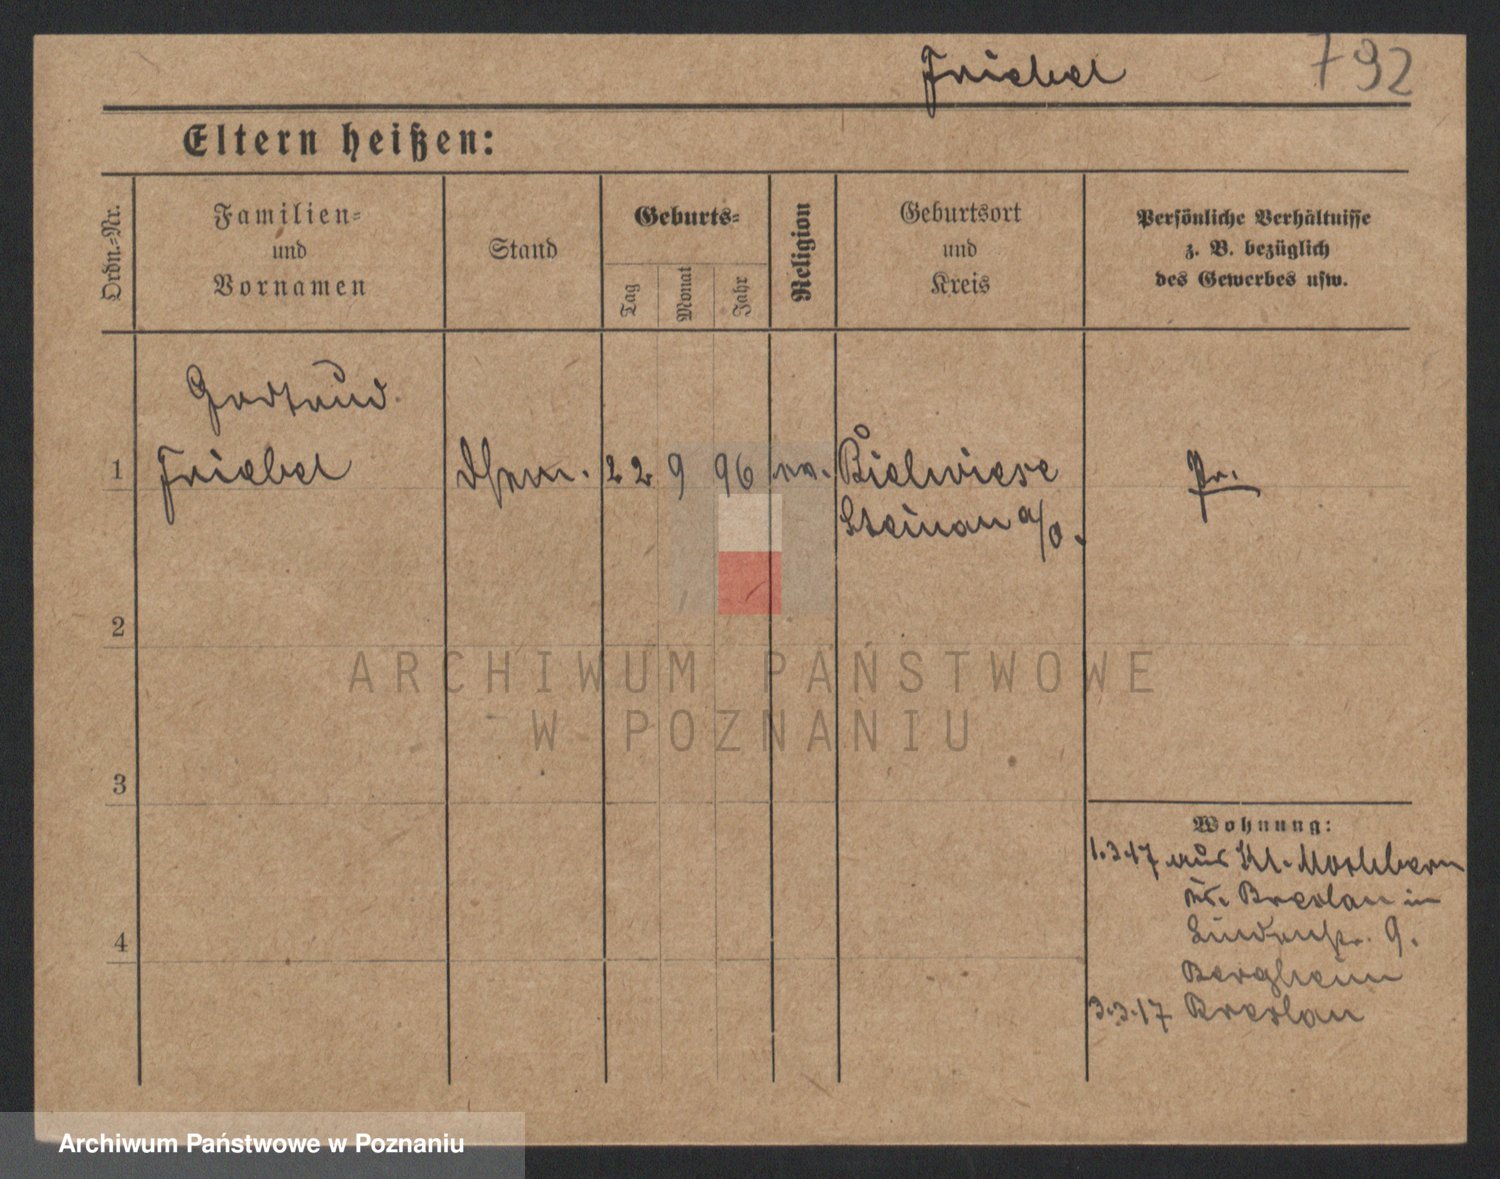 Friebel 792
Eltern heißen:
Ordn.-Nr.
Familien-
und
Vornamen
Stand
Geburts-
Tag
Monat
Jahr
Religion
Geburtsort
und
Kreis
Persönliche Verhältnisse
z. B. bezüglich
des Gewerbes usw.
Gertrud
1 Friebel 22 9 96 ev. Bielwiese Pr.
Steinau a/O.
2
3
4
Wohnung:
1.3.17 aus Kl. Mochbern
Breslau in
Lindenstr. 9.
Bergheim
3.3.17 Breslau
ARCHIWUM PAŃSTWOWE
W POZNANIU
Archiwum Państwowe w Poznaniu